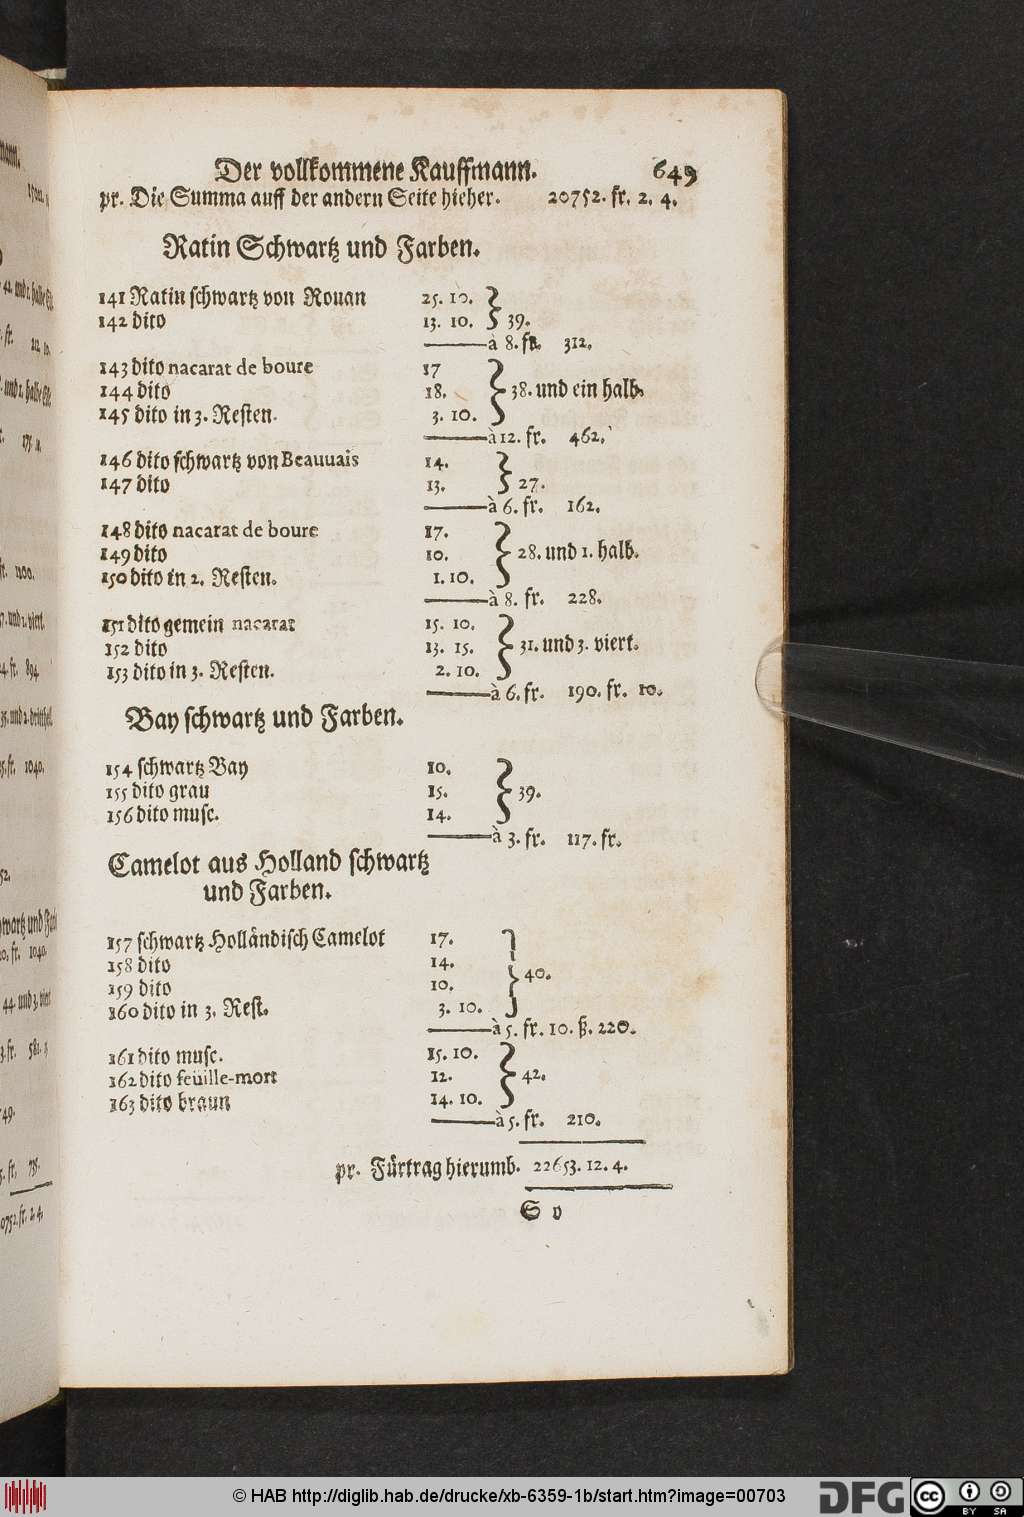 Der vollkommene Kauffmann. 649
pr. Die Summa auff der andern Seite hieher. 20752. fr. 2. 4.
Ratin Schwartz und Farben.
141 Ratin schwartz von Rouan 25. 10.
142 dito 13. 10. } 39.
à 8. fr. 312.
143 dito nacarat de boure 17
144 dito 18. } 38. und ein halb.
145 dito in 3. Resten. 3. 10.
à 12. fr. 462.
146 dito schwartz von Beauuais 14.
147 dito 13. } 27.
à 6. fr. 162.
148 dito nacarat de boure 17.
149 dito 10. } 28. und 1. halb.
150 dito in 2. Resten. 1. 10.
à 8. fr. 228.
151 dito gemein nacarat 15. 10.
152 dito 13. 15. } 31. und 3. viert.
153 dito in 3. Resten. 2. 10.
à 6. fr. 190. fr. 10.
Bay schwartz und Farben.
154 schwartz Bay 10.
155 dito grau 15. } 39.
156 dito musc. 14.
à 3. fr. 117. fr.
Camelot aus Holland schwartz
und Farben.
157 schwartz Holländisch Camelot 17.
158 dito 14. } 40.
159 dito 10.
160 dito in 3. Rest. 3. 10.
à 5. fr. 10. ß. 220.
161 dito musc. 15. 10.
162 dito feüille-mort 12. } 42.
163 dito braun 14. 10.
à 5. fr. 210.
pr. Fürtrag hierumb. 22653. 12. 4.
S v
© HAB http://diglib.hab.de/drucke/xb-6359-1b/start.htm?image=00703
DFG
cc BY SA